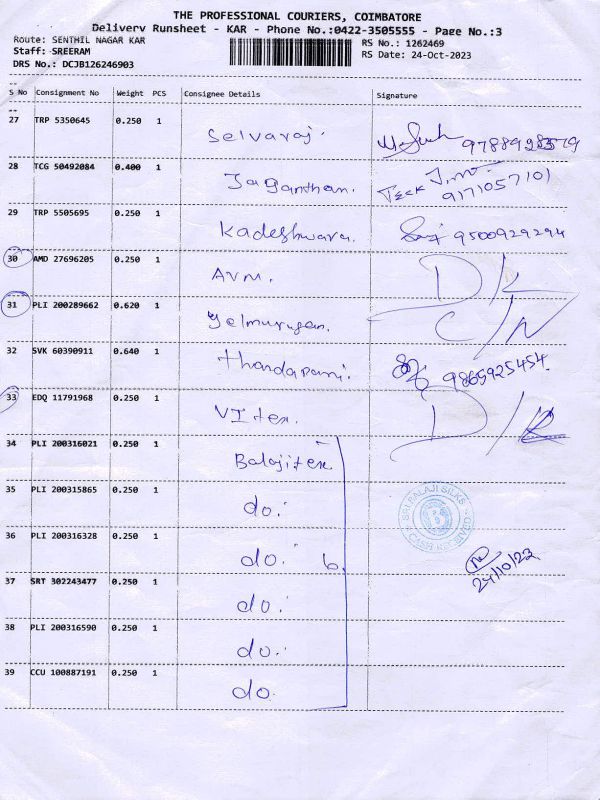 THE PROFESSIONAL COURIERS, COIMBATORE
Delivery Runsheet - KAR - Phone No.:0422-3505555 - Page No.:3
Route: SENTHIL NAGAR KAR
RS No.: 1262469
Staff: SREERAM
RS Date: 24-Oct-2023
DRS No.: DCJB126246903
S No Consignment No Weight PCS Consignee Details Signature
27 TRP 5350645 0.250 1 Selvaraj.
28 TCG 50492084 0.400 1 Jaganthan. 9171057101
29 TRP 5505695 0.250 1 Kadeshwara. 9500929294
30 AMD 27696205 0.250 1 Avm. D/L
31 PLI 200289662 0.620 1 Yelmurugan. C/N
32 SVK 60390911 0.640 1 Thandapani. 9865925454.
33 EDQ 11791968 0.250 1 VItex.
34 PLI 200316021 0.250 1 Balajitex
35 PLI 200315865 0.250 1 do.
36 PLI 200316328 0.250 1 do. 6.
37 SRT 302243477 0.250 1 do.
38 PLI 200316590 0.250 1 do.
39 CCU 100887191 0.250 1 do.
SRI BALAJI SILKS
24/10/23